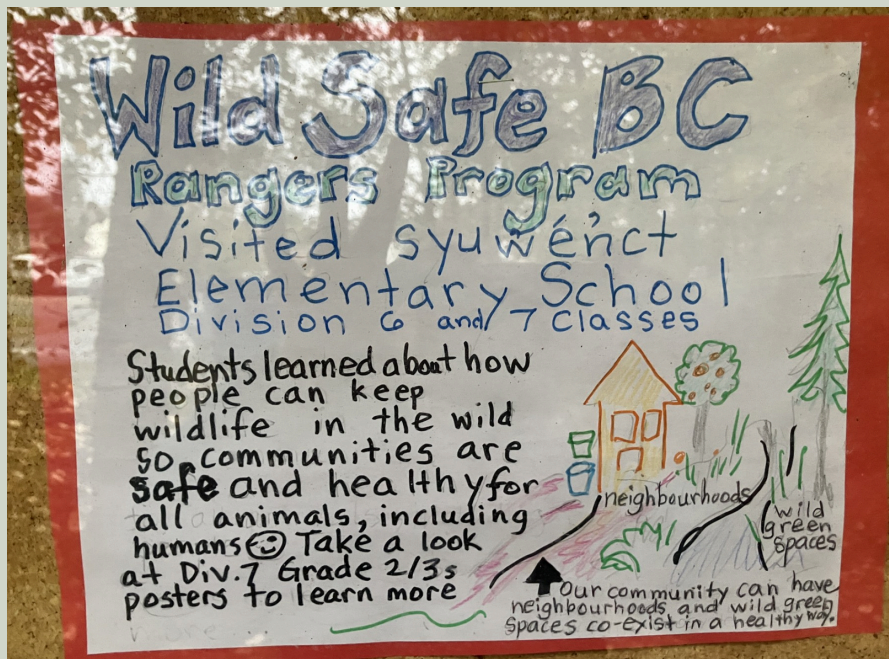 Wild Safe BC
Rangers Program
Visited syuwén̓ct
Elementary School
Division 6 and 7 classes
Students learned about how
people can keep
wildlife in the wild
so communities are
safe and healthy for
all animals, including
humans☺ Take a look
at Div. 7 Grade 2/3s
posters to learn more
neighbourhoods
wild
green
spaces
Our community can have
neighbourhoods and wild green
spaces co-exist in a healthy way.